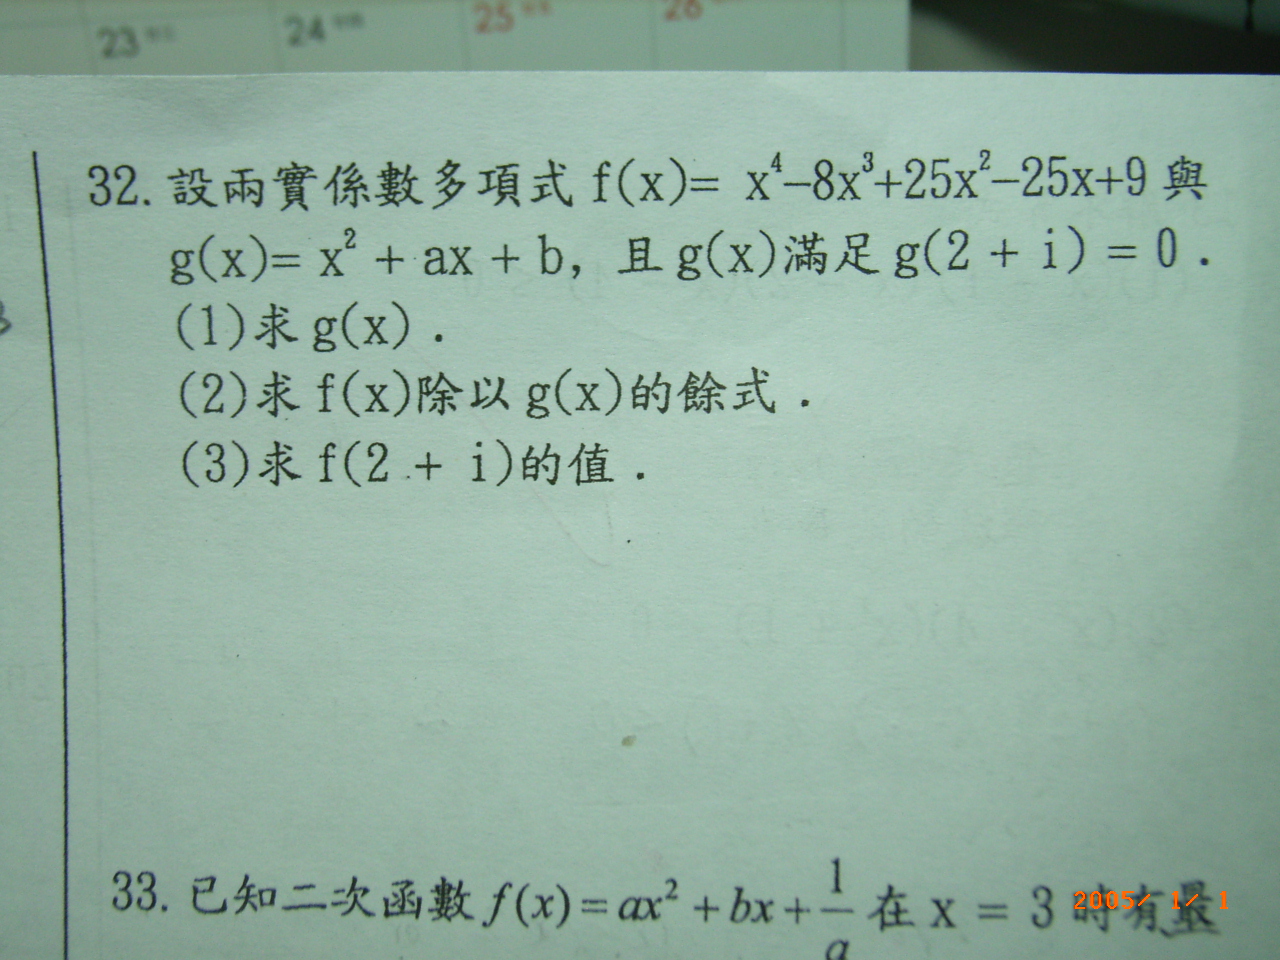 23
24
25
26
32. 設兩實係數多項式 f(x)= x⁴−8x³+25x²−25x+9 與
g(x)= x² + ax + b, 且 g(x)滿足 g(2 + i) = 0 .
(1)求 g(x) .
(2)求 f(x)除以 g(x)的餘式 .
(3)求 f(2 + i)的值 .
33. 已知二次函數 f(x)=ax²+bx+1/a 在 x = 3 時有最
2005/ 1/ 1